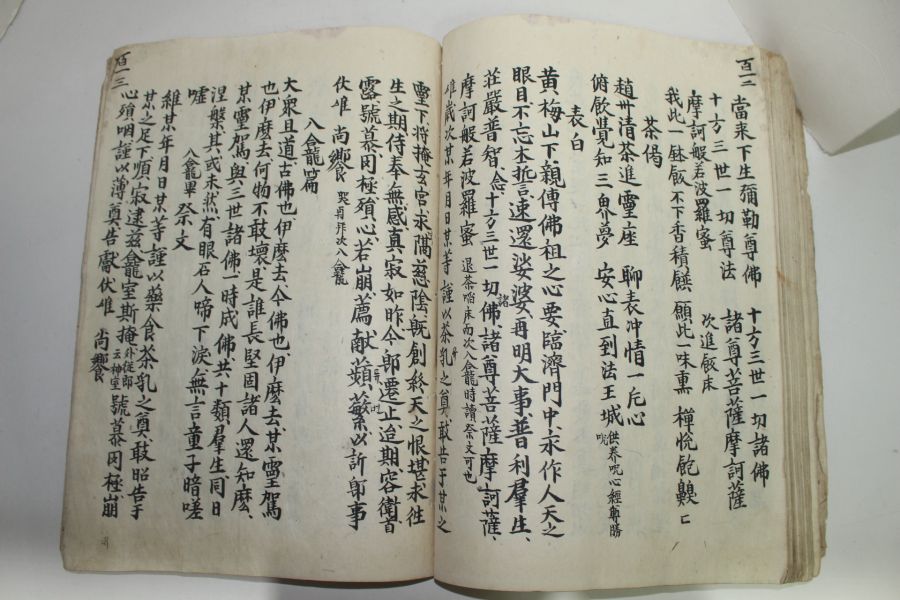 百一二
當来下生彌勒尊佛 十方三世一切諸佛
十方三世一切尊法 諸尊菩薩摩訶薩
摩訶般若波羅蜜 次進飯床
我此一鉢飯不下香積饌 願此一味熏 禪悅飽
茶偈
趙州清茶進靈座 聊表冲情一片心
俯飮覺知三界夢 安心直到法王城 供养呪心經尊勝呪
表白
黄梅山下親傳佛祖之心要臨濟門中永作人天之
眼目不忘本誓速還娑婆再明大事普利羣生
莊嚴普智念十方三世一切諸佛諸尊菩薩摩訶薩
摩訶般若波羅蜜 退茶啗床而次入龕時讀祭文可也
維歲次某年月日某等謹以茶乳之奠敢告于某之
靈下將掩玄宮永隔慈陰旣創終天之恨堪求徃
生之期侍奉無感真寂如昨今郞遷止迨期容衛首
露號慕罔極殞心若崩薦献蘋蘩以訢卽事
伏惟 尚饗 哭再拜次入龕
入龕篇
大衆且道古佛也伊麼去今佛也伊麼去某靈駕
也伊麼去何物不敢壞是誰長堅固諸人還知麽
某靈駕與三世諸佛一時成佛共十類羣生同日
涅槃其或未然有眼石人啼下淚無言童子暗嗟
噓 入龕畢祭文
維某年月日某等謹以藥食茶乳之奠敢昭告于
某之足下順寂逮兹龕室斯掩 外從郎云神室 號慕罔極崩
心殞咽謹以薄奠告獻伏惟 尚饗
百一三